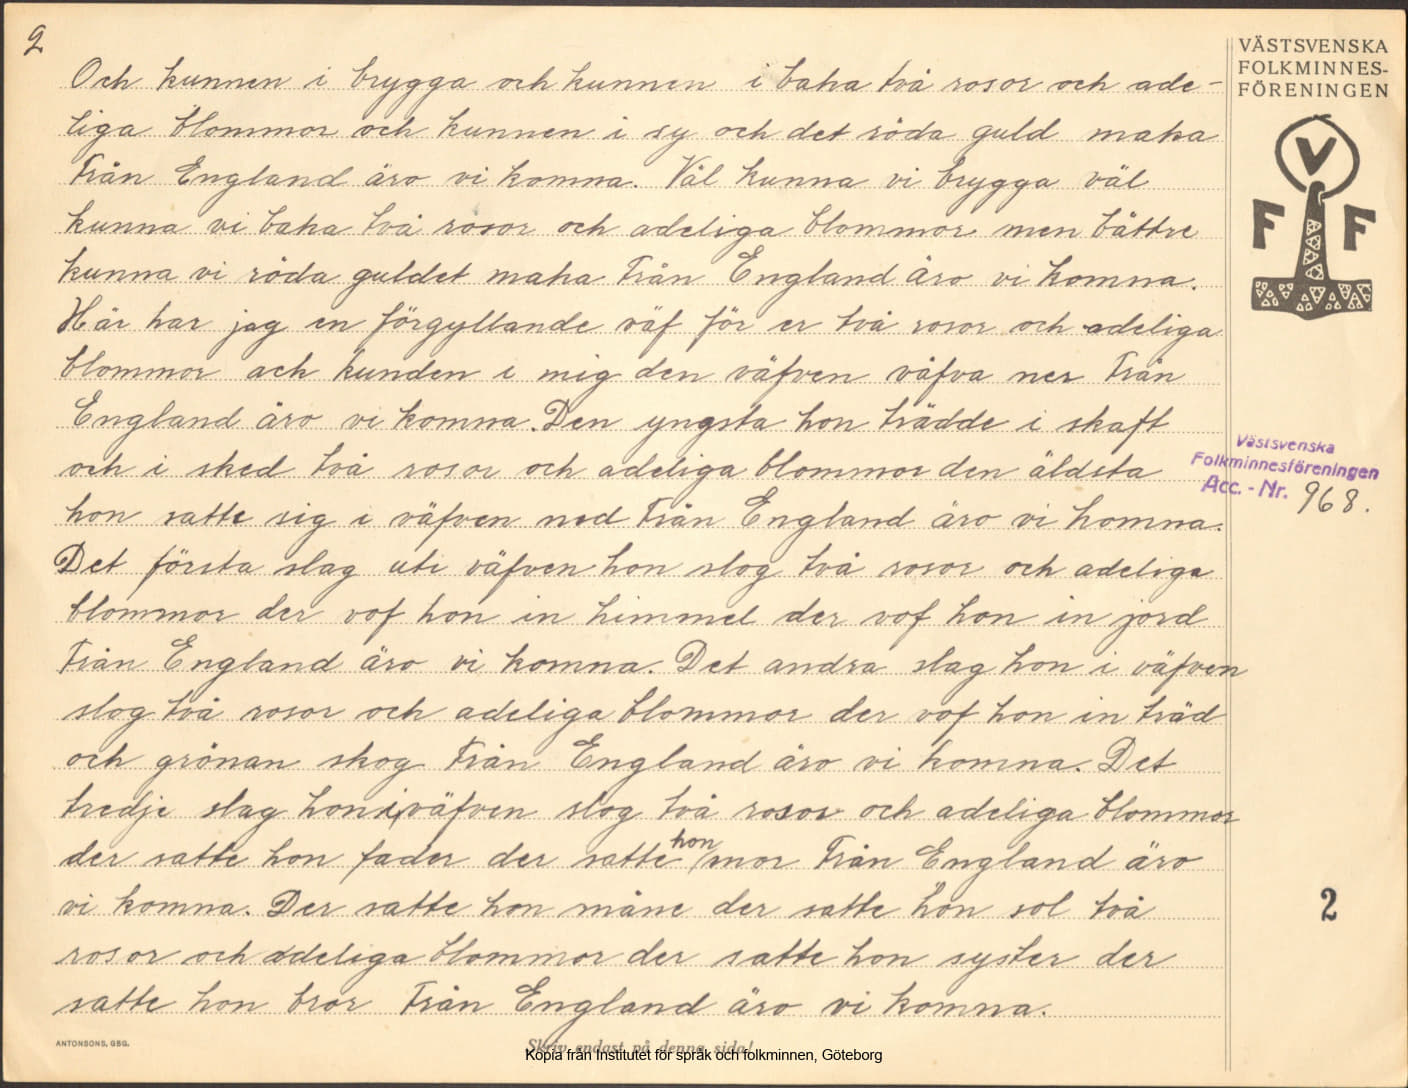 2
Och kunnen i brygga och kunnen i baka två rosor och ade-
liga blommor och kunnen i sy och det röda guld maka
Från England äro vi komna. Väl kunna vi brygga väl
kunna vi baka två rosor och adeliga blommor men bättre
kunna vi röda guldet maka Från England äro vi komna.
Här har jag en förgyllande väf för er två rosor och adeliga
blommor ach kunden i mig den väfven väfva ner Från
England äro vi komna. Den yngsta hon trädde i skaft
och i sked två rosor och adeliga blommor den äldsta
hon satte sig i väfven ned Från England äro vi komna.
Det första slag uti väfven hon slog två rosor och adeliga
blommor der vof hon in himmel der vof hon in jord
Från England äro vi komna. Det andra slag hon i väfven
slog två rosor och adeliga blommor der vof hon in träd
och grönan skog Från England äro vi komna. Det
tredje slag hon i väfven slog två rosor och adeliga blommor
der satte hon fader der satte hon mor Från England äro
vi komna. Der satte hon måne der satte hon sol två
rosor och adeliga blommor der satte hon syster der
satte hon bror Från England äro vi komna.
VÄSTSVENSKA
FOLKMINNES-
FÖRENINGEN
V
F F
Västsvenska
Folkminnesföreningen
Acc.-Nr. 968.
2
ANTONSONS, GBG.
Skriv endast på denna sida!
Kopia från Institutet för språk och folkminnen, Göteborg